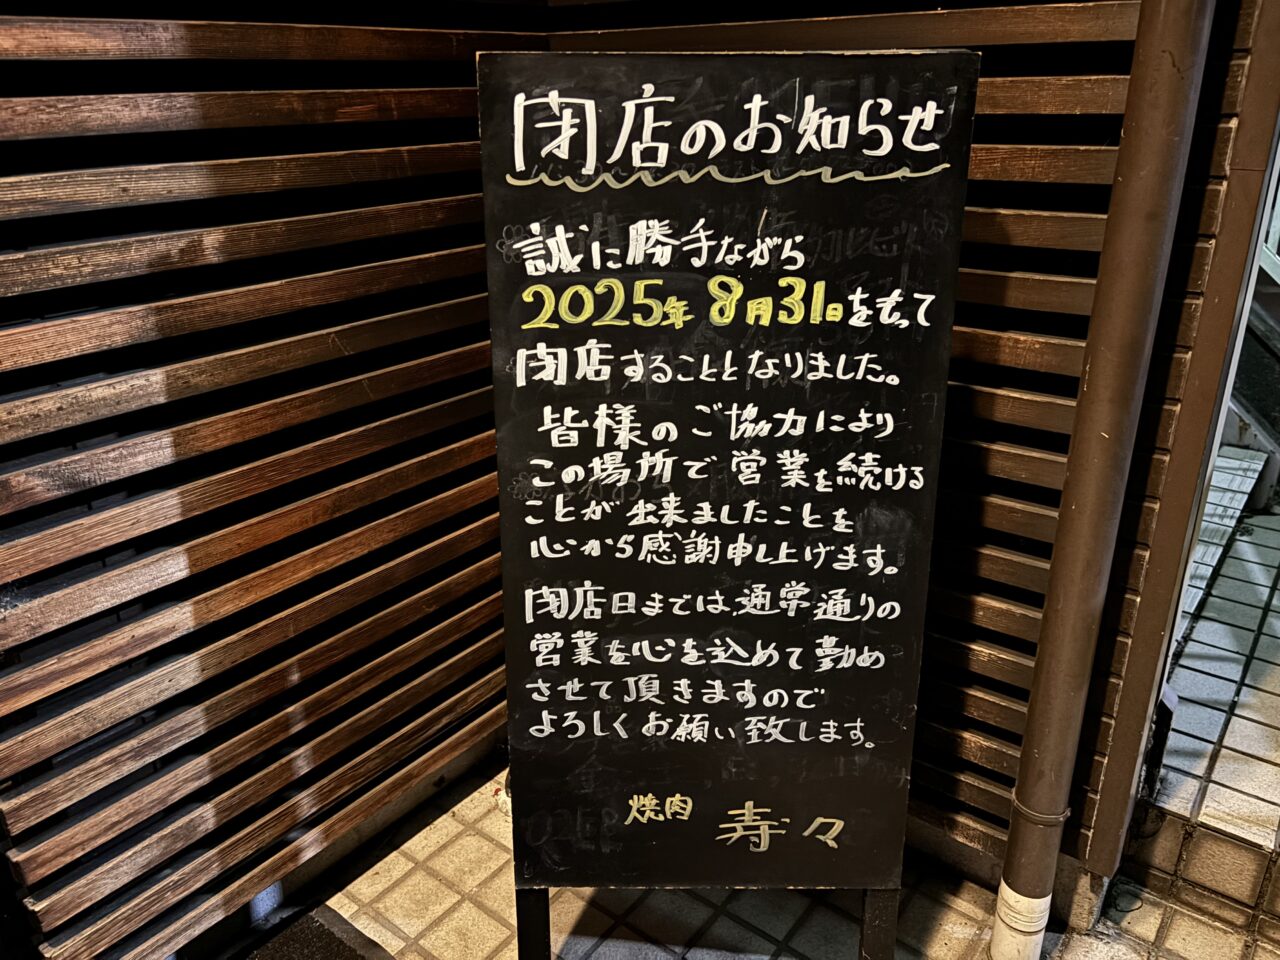 閉店のお知らせ
誠に勝手ながら
2025年 8月31日をもって
閉店することとなりました。
皆様のご協力により
この場所で営業を続ける
ことが出来ましたことを
心から感謝申し上げます。
閉店日までは、通常通りの
営業を心を込めて勤め
させて頂きますので
よろしくお願い致します。
焼肉 寿々